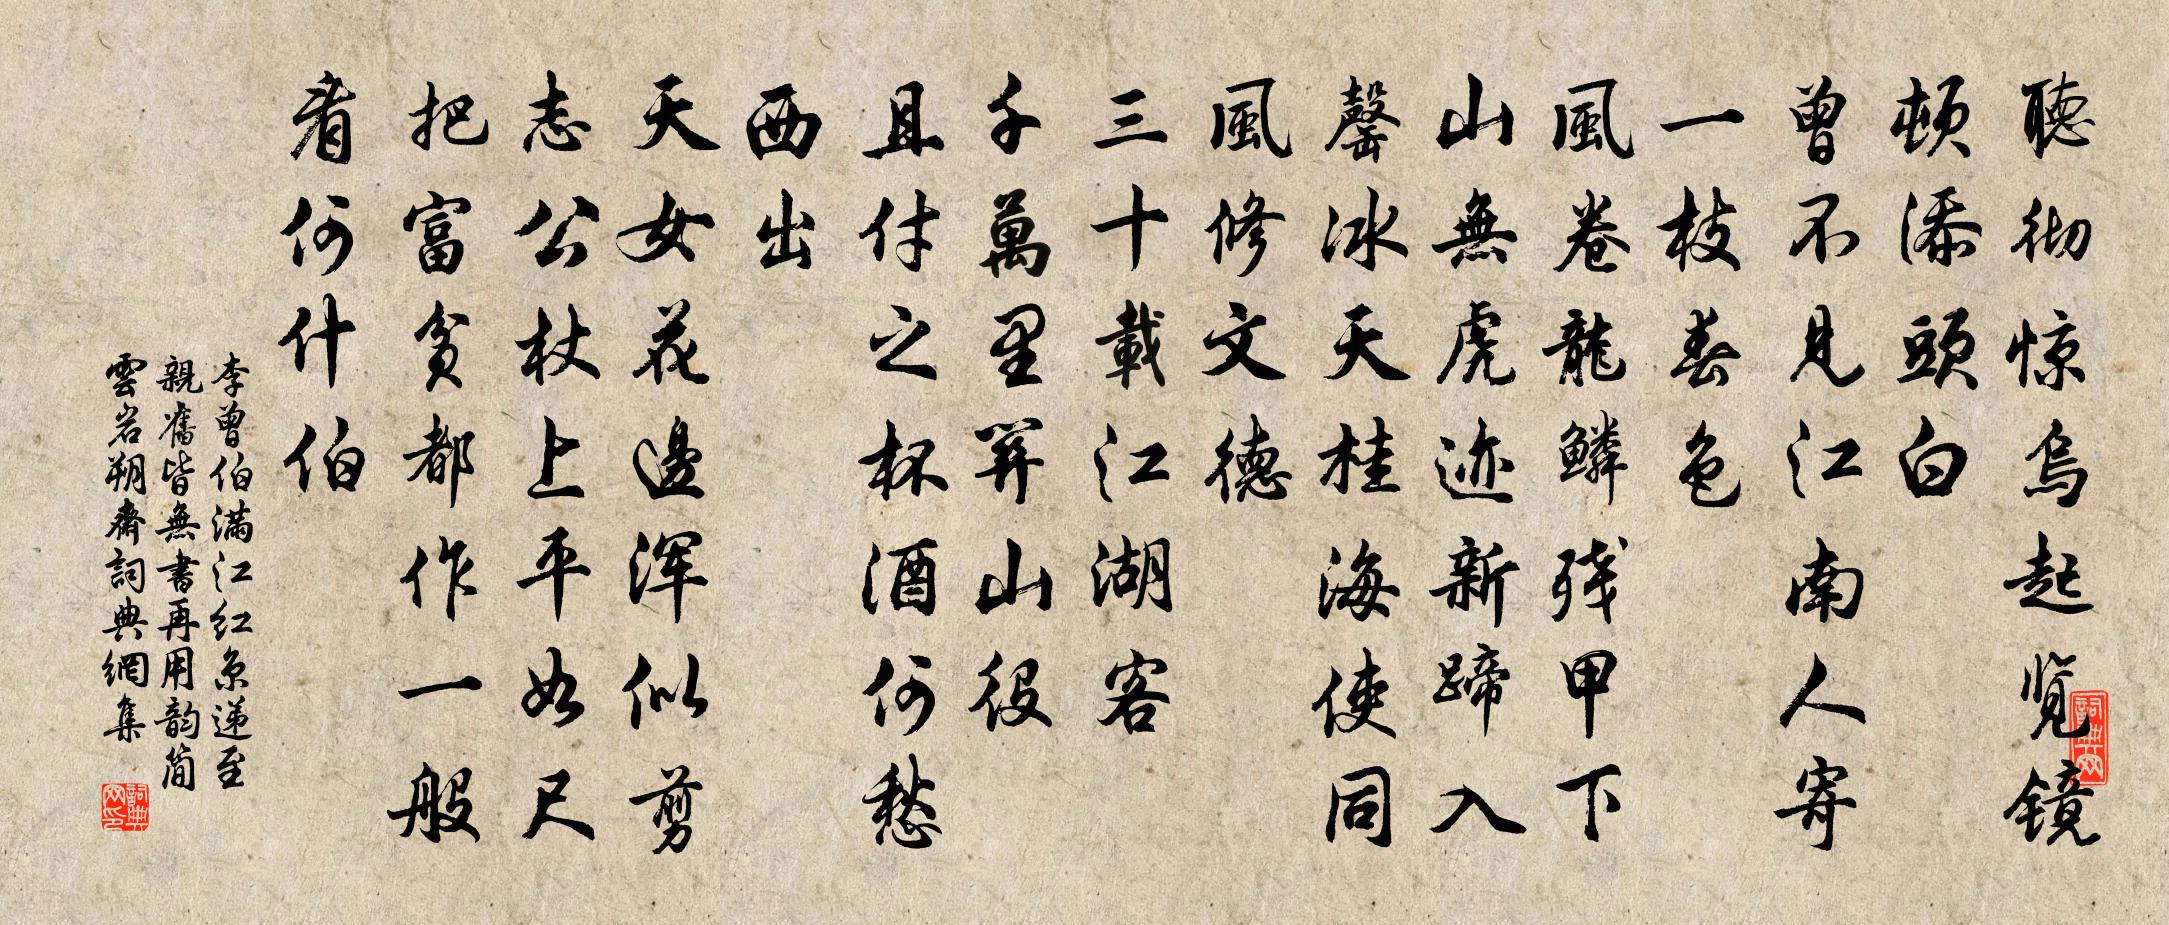 聽彻惊烏起览镜
頓添頭白
曾不見江南人寄
一枝春色
風卷龍鱗残甲下
山無虎迹新蹄入
罄冰天桂海使同
風修文德
三十載江湖客
千萬里関山役
且付之杯酒何愁
西出
天女花邊浑似剪
志公杖上平如尺
把富貧都作一般
看何什伯
李曾伯满江红京递至
親舊皆無書再用韵简
雲岩朔齋詞典網集
詞典网
詞典网印